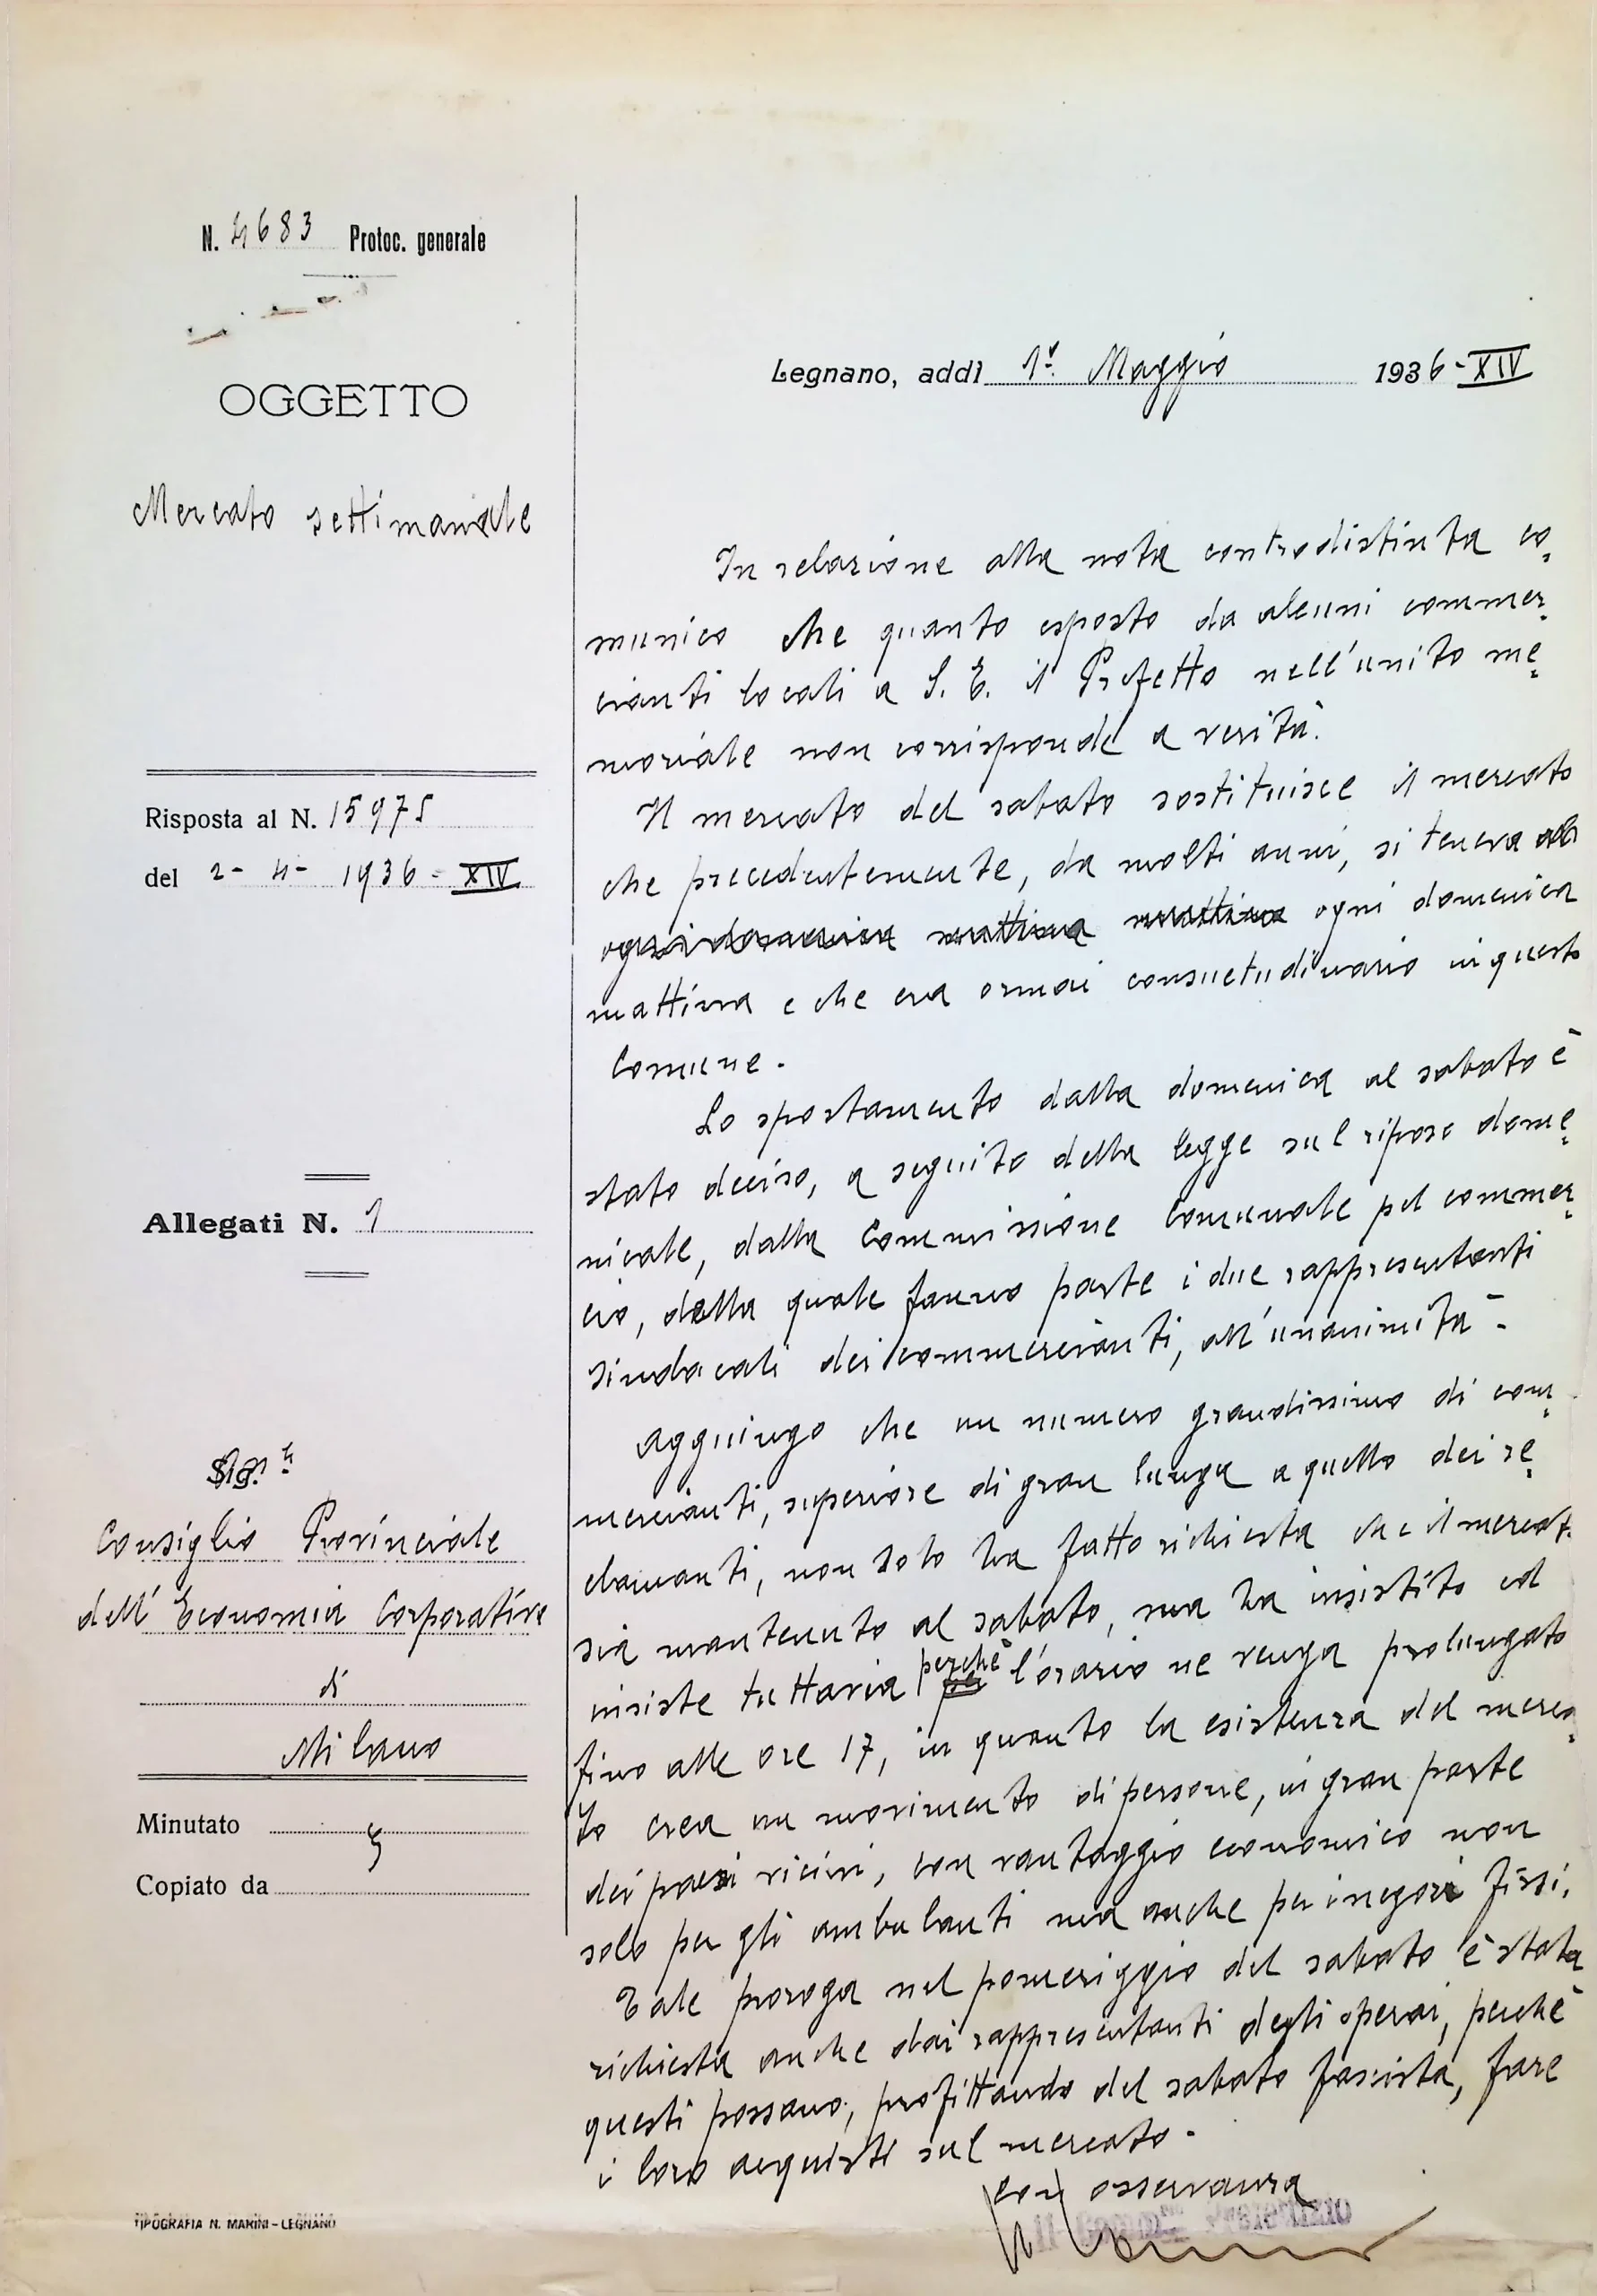 N. 4683 Protoc. generale
OGGETTO
Mercato settimanale
Risposta al N. 15975
del 2-4-1936-XIV
Allegati N. 1
Consiglio Provinciale
dell'Economia Corporativa
di
Milano
Minutato
Copiato da
TIPOGRAFIA N. MARINI - LEGNANO
Legnano, addì 1° Maggio 1936-XIV
In relazione alla nota controdistinta co=
munico che quanto esposto da alcuni commer=
cianti locali a S. E. il Prefetto nell'unito me=
moriale non corrisponde a verità.
Il mercato del sabato sostituisce il mercato
che precedentemente, da molti anni, si teneva
ogni domenica mattina mattina ogni domenica
mattina e che era ormai consuetudinario in questo
Comune.
Lo spostamento dalla domenica al sabato è
stato deciso, a seguito della legge sul riposo dome=
nicale, dalla Commissione Comunale pel commer=
cio, della quale fanno parte i due rappresentanti
sindacali dei commercianti, all'unanimità.
Aggiungo che un numero grandissimo di com=
mercianti, superiore di gran lunga a quello dei re=
clamanti, non solo ha fatto richiesta che il mercato
sia mantenuto al sabato, ma ha insistito ed
insiste tuttavia perchè l'orario ne venga prolungato
fino alle ore 17, in quanto la esistenza del merca=
to crea un movimento di persone, in gran parte
dei paesi vicini, con vantaggio economico non
solo per gli ambulanti ma anche per i negozi fissi.
Tale proroga nel pomeriggio del sabato è stata
richiesta anche dai rappresentanti degli operai, perchè
questi possano, profittando del sabato fascista, fare
i loro acquisti sul mercato.
Con osservanza
Il Comm. Prefettizio